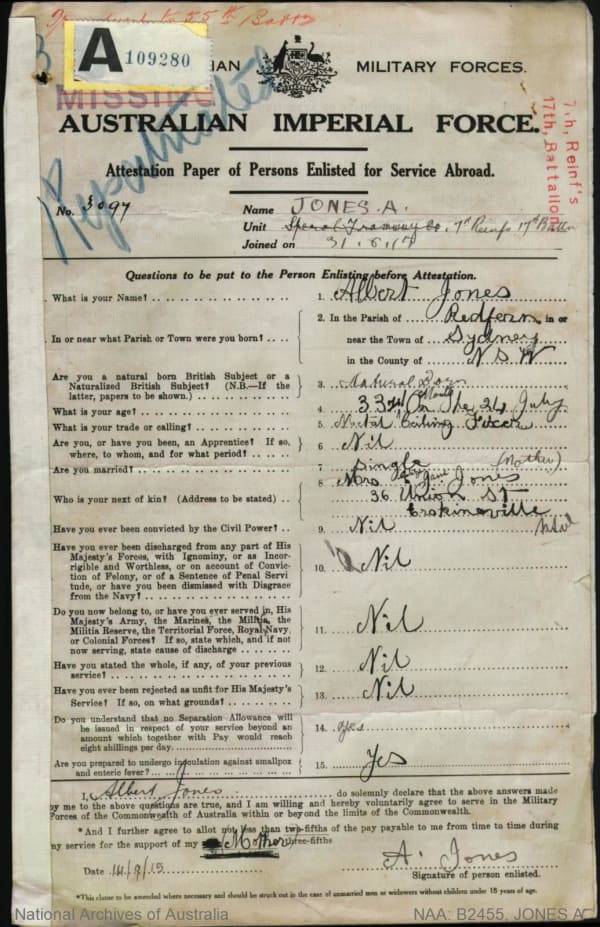 to 55th Battn
A 109280
MILITARY FORCES.
MISSING
Repatriated
AUSTRALIAN IMPERIAL FORCE.
7th, Reinf's
17th, Battalion
Attestation Paper of Persons Enlisted for Service Abroad.
No. 3097
Name JONES. A.
Unit 7th Reinfs 17th Battn
Joined on
Questions to be put to the Person Enlisting before Attestation.
What is your Name? 1. Albert Jones
In or near what Parish or Town were you born? 2. In the Parish of Redfern in or
near the Town of Sydney
in the County of N S W
Are you a natural born British Subject or a
Naturalized British Subject? (N.B.—If the
latter, papers to be shown.) 3. Natural Born
What is your age? 4. 33 On The 24 July
What is your trade or calling? 5. Metal Ceiling Fixer
Are you, or have you been, an Apprentice? If so,
where, to whom, and for what period? 6. Nil
Are you married? 7. Single
Who is your next of kin? (Address to be stated) 8. Mrs Jones (Mother)
36 Union St
Erskineville
NSW
Have you ever been convicted by the Civil Power? 9. Nil
Have you ever been discharged from any part of His
Majesty's Forces, with Ignominy, or as Incor-
rigible and Worthless, or on account of Convic-
tion of Felony, or of a Sentence of Penal Servi
tude, or have you been dismissed with Disgrace
from the Navy? 10. Nil
Do you now belong to, or have you ever served in, His
Majesty's Army, the Marines, the Militia, the
Militia Reserve, the Territorial Force, Royal Navy,
or Colonial Forces? If so, state which, and if not
now serving, state cause of discharge 11. Nil
Have you stated the whole, if any, of your previous
service? 12. Nil
Have you ever been rejected as unfit for His Majesty's
Service? If so, on what grounds? 13. Nil
Do you understand that no Separation Allowance will
be issued in respect of your service beyond an
amount which together with Pay would reach
eight shillings per day. 14. Yes
Are you prepared to undergo inoculation against smallpox
and enteric fever? 15. Yes
I, Albert Jones do solemnly declare that the above answers made
by me to the above questions are true, and I am willing and hereby voluntarily agree to serve in the Military
Forces of the Commonwealth of Australia within or beyond the limits of the Commonwealth.
*And I further agree to allot not less than two-fifths of the pay payable to me from time to time during
my service for the support of my (Mother) three-fifths
Date 14/9/15
A. Jones
Signature of person enlisted.
*This clause to be amended where necessary and should be struck out in the case of unmarried men or widowers without children under 18 years of age.
National Archives of Australia
NAA: B2455, JONES A